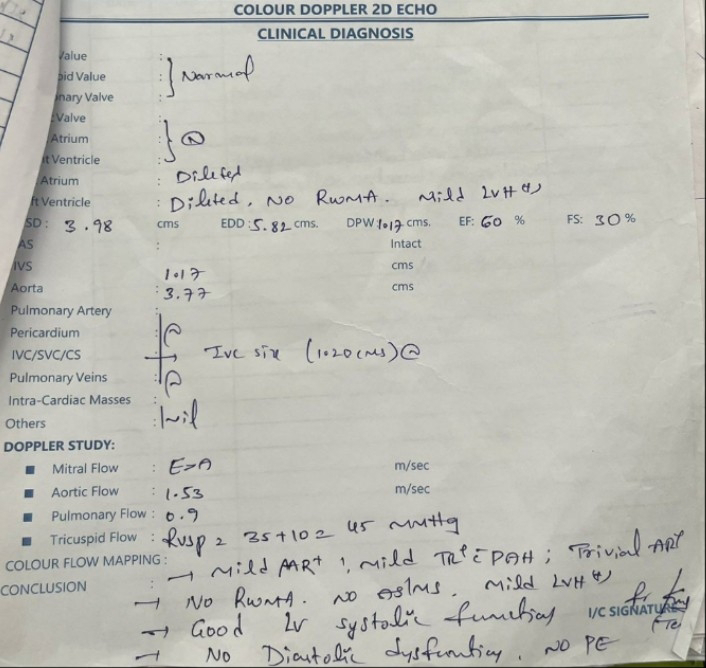 COLOUR DOPPLER 2D ECHO
CLINICAL DIAGNOSIS
Value :
id Value : } Normal
nary Valve :
Valve :
Atrium : } N
t Ventricle :
Atrium : Dilated
ft Ventricle : Dilated, NO RWMA. Mild LVH (+)
SD : 3.98 cms EDD : 5.82 cms. DPW : 1.17 cms. EF: 60 % FS: 30 %
AS : Intact
IVS 1.17 cms
Aorta : 3.77 cms
Pulmonary Artery :
Pericardium :
IVC/SVC/CS IVC size (1.20 cms) N
Pulmonary Veins :
Intra-Cardiac Masses :
Others : Nil
DOPPLER STUDY:
■ Mitral Flow : E>A m/sec
■ Aortic Flow : 1.53 m/sec
■ Pulmonary Flow : 0.9
■ Tricuspid Flow : RVSP = 35+10 = 45 mmHg
COLOUR FLOW MAPPING : → Mild MR+ ; Mild TR+ c̄ PAH ; Trivial AR+
CONCLUSION : → NO RWMA. NO AS/MS. Mild LVH (+)
→ Good LV systolic function
I/C SIGNATURE
→ No Diastolic dysfunction. NO PE